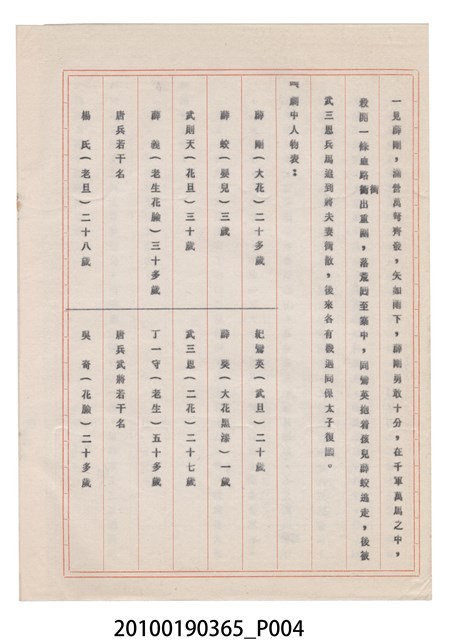 一見薛剛，滿營萬弩齊發，矢如雨下，薛剛勇敢十分，在千軍萬馬之中，
殺開一條血路衝出重圍，落荒回至寨中，同鸞英抱着孩兒薛蛟逃走，後被
武三思兵馬追到將夫妻衝散，後來各有機遇同保太子復國。
『劇中人物表：
薛　剛（大花）二十多歲
紀鸞英（武旦）二十歲
薛　蛟（嬰兒）三歲
薛　葵（大花黑漆）一歲
武則天（花旦）三十歲
武三思（二花）二十七歲
薛　義（老生花臉）三十多歲
丁一守（老生）五十多歲
唐兵若干名
唐兵武將若干名
楊　氏（老旦）二十八歲
吳　奇（花臉）二十多歲
20100190365_P004